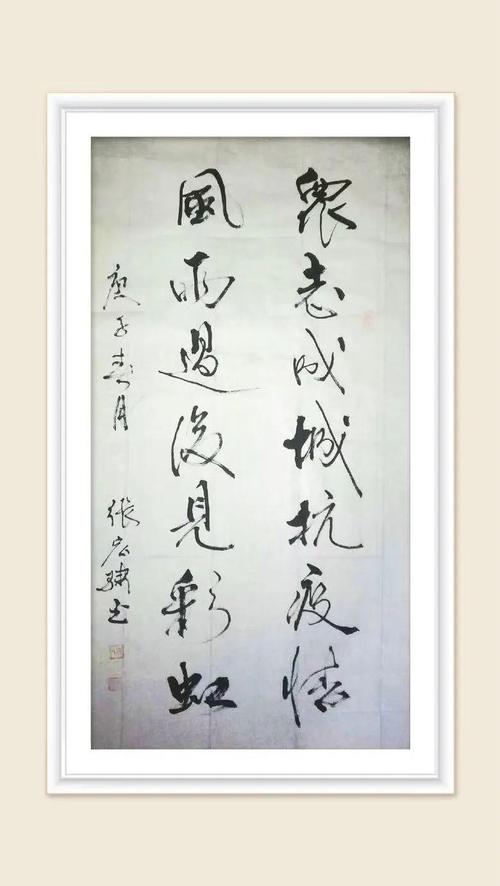 眾志成城抗疫情
風雨過後見彩虹
庚子春月
張宏驌书